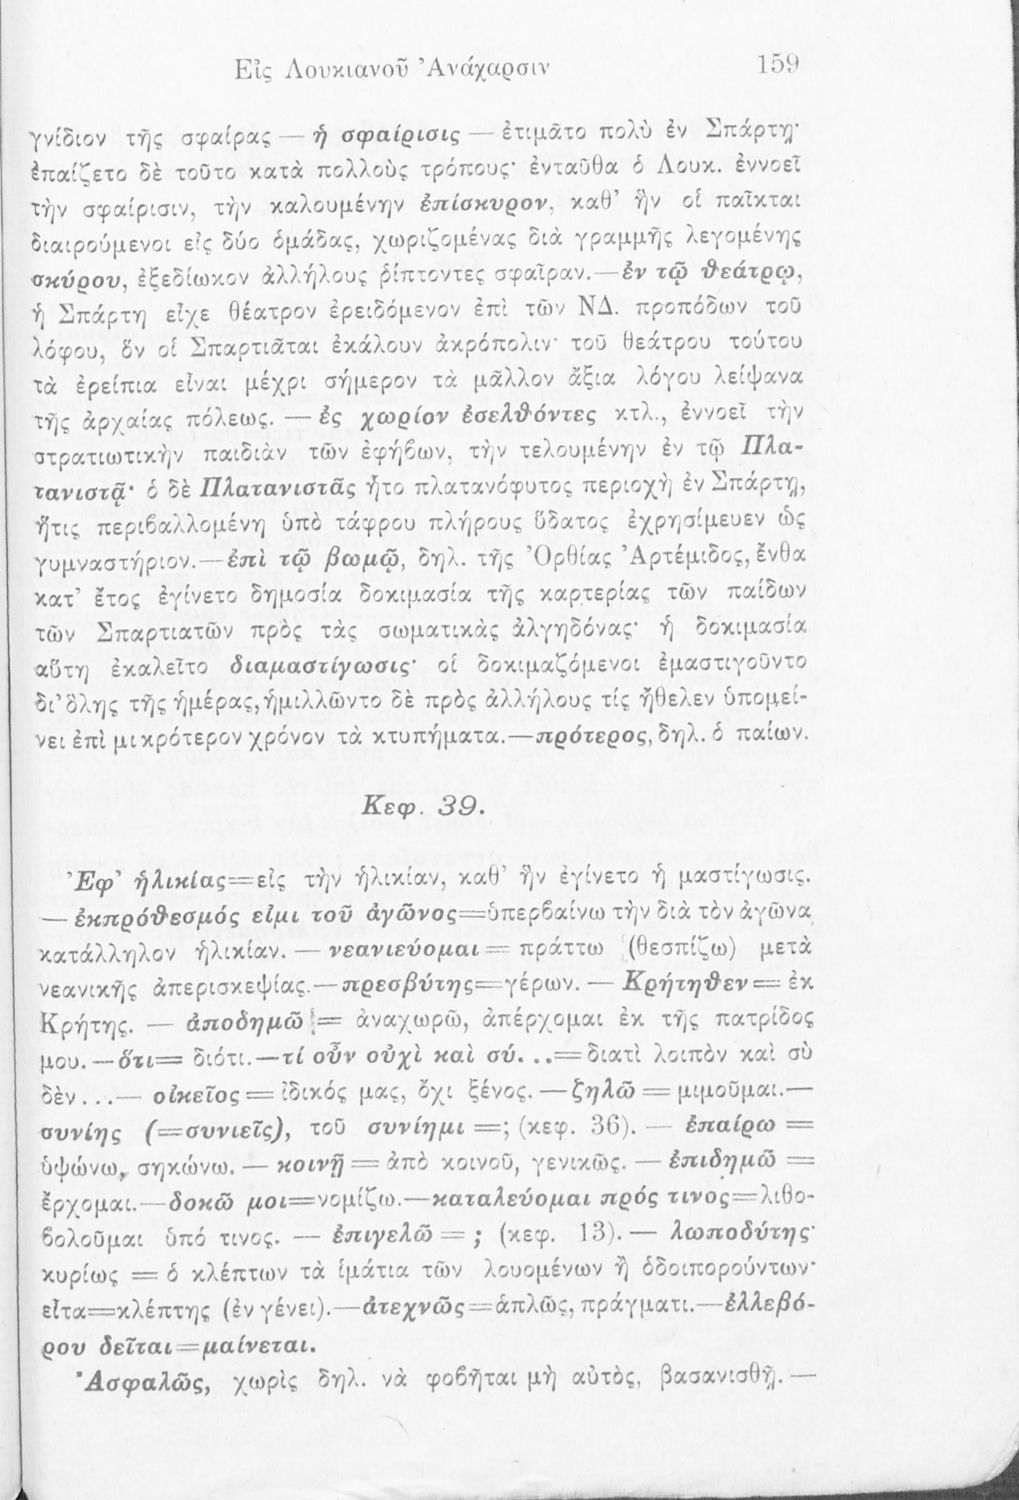 Εἰς Λουκιανοῦ Ἀνάχαρσιν 159
γνίδιον τῆς σφαίρας — ἡ σφαίρισις — ἐτιμᾶτο πολὺ ἐν Σπάρτῃ·
ἐπαίζετο δὲ τοῦτο κατὰ πολλοὺς τρόπους· ἐνταῦθα ὁ Λουκ. ἐννοεῖ
τὴν σφαίρισιν, τὴν καλουμένην ἐπίσκυρον, καθ’ ἣν οἱ παῖκται
διαιρούμενοι εἰς δύο ὁμάδας, χωριζομένας διὰ γραμμῆς λεγομένης
σκύρου, ἐξεδίωκον ἀλλήλους ῥίπτοντες σφαῖραν.—ἐν τῷ θεάτρῳ,
ἡ Σπάρτη εἶχε θέατρον ἐρειδόμενον ἐπὶ τῶν ΝΔ. προπόδων τοῦ
λόφου, ὃν οἱ Σπαρτιᾶται ἐκάλουν ἀκρόπολιν· τοῦ θεάτρου τούτου
τὰ ἐρείπια εἶναι μέχρι σήμερον τὰ μᾶλλον ἄξια λόγου λείψανα
τῆς ἀρχαίας πόλεως. — ἐς χωρίον ἐσελθόντες κτλ., ἐννοεῖ τὴν
στρατιωτικὴν παιδιὰν τῶν ἐφήβων, τὴν τελουμένην ἐν τῷ Πλα-
τανιστᾷ· ὁ δὲ Πλατανιστᾶς ἦτο πλατανόφυτος περιοχὴ ἐν Σπάρτῃ,
ἥτις περιβαλλομένη ὑπὸ τάφρου πλήρους ὕδατος ἐχρησίμευεν ὡς
γυμναστήριον.—ἐπὶ τῷ βωμῷ, δηλ. τῆς Ὀρθίας Ἀρτέμιδος, ἔνθα
κατ’ ἔτος ἐγίνετο δημοσία δοκιμασία τῆς καρτερίας τῶν παίδων
τῶν Σπαρτιατῶν πρὸς τὰς σωματικὰς ἀλγηδόνας· ἡ δοκιμασία
αὕτη ἐκαλεῖτο διαμαστίγωσις· οἱ δοκιμαζόμενοι ἐμαστιγοῦντο
δι’ ὅλης τῆς ἡμέρας, ἡμιλλῶντο δὲ πρὸς ἀλλήλους τίς ἤθελεν ὑπομεί-
νει ἐπὶ μικρότερον χρόνον τὰ κτυπήματα.—πρότερος, δηλ. ὁ παίων.
Κεφ. 39.
Ἐφ’ ἡλικίας=εἰς τὴν ἡλικίαν, καθ’ ἣν ἐγίνετο ἡ μαστίγωσις.
— ἐκπρόθεσμός εἰμι τοῦ ἀγῶνος=ὑπερβαίνω τὴν διὰ τὸν ἀγῶνα
κατάλληλον ἡλικίαν. — νεανιεύομαι = πράττω (θεσπίζω) μετὰ
νεανικῆς ἀπερισκεψίας.—πρεσβύτης=γέρων. — Κρήτηθεν = ἐκ
Κρήτης. — ἀποδημῶ = ἀναχωρῶ, ἀπέρχομαι ἐκ τῆς πατρίδος
μου. — ὅτι= διότι.—τί οὖν οὐχὶ καὶ σύ. ..=διατὶ λοιπὸν καὶ σὺ
δὲν...— οἰκεῖος = ἰδικός μας, ὄχι ξένος. — ζηλῶ = μιμοῦμαι.—
συνίης (=συνιεῖς), τοῦ συνίημι =; (κεφ. 36). — ἐπαίρω =
ὑψώνω, σηκώνω. — κοινῇ = ἀπὸ κοινοῦ, γενικῶς. — ἐπιδημῶ =
ἔρχομαι.—δοκῶ μοι=νομίζω.—καταλεύομαι πρός τινος=λιθο-
βολοῦμαι ὑπό τινος. — ἐπιγελῶ = ; (κεφ. 13). — λωποδύτης·
κυρίως = ὁ κλέπτων τὰ ἱμάτια τῶν λουομένων ἢ ὁδοιπορούντων·
εἶτα=κλέπτης (ἐν γένει).—ἀτεχνῶς=ἁπλῶς, πράγματι.—ἐλλεβό-
ρου δεῖται=μαίνεται.
Ἀσφαλῶς, χωρὶς δηλ. νὰ φοβῆται μὴ αὐτὸς, βασανισθῇ. —